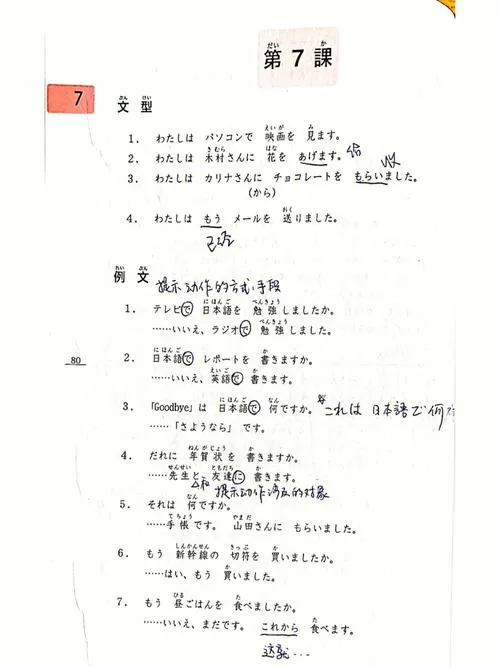 第7課
7
文型
1. わたしは パソコンで 映画を 見ます。
2. わたしは 木村さんに 花を あげます。给
3. わたしは カリナさんに チョコレートを もらいました。收
(から)
4. わたしは もう メールを 送りました。
已经
例文 提示动作的方式、手段
1. テレビで 日本語を 勉強しましたか。
……いいえ、ラジオで 勉強しました。
80
2. 日本語で レポートを 書きますか。
……いいえ、英語で 書きます。
3. 「Goodbye」は 日本語で 何ですか。 これは 日本語で 何
……「さようなら」です。
4. だれに 年賀状を 書きますか。
……先生と 友達に 書きます。
和 提示动作涉及的对象
5. それは 何ですか。
……手帳です。 山田さんに もらいました。
6. もう 新幹線の 切符を 買いましたか。
……はい、もう 買いました。
7. もう 昼ごはんを 食べましたか。
……いいえ、まだです。 これから 食べます。
这就…